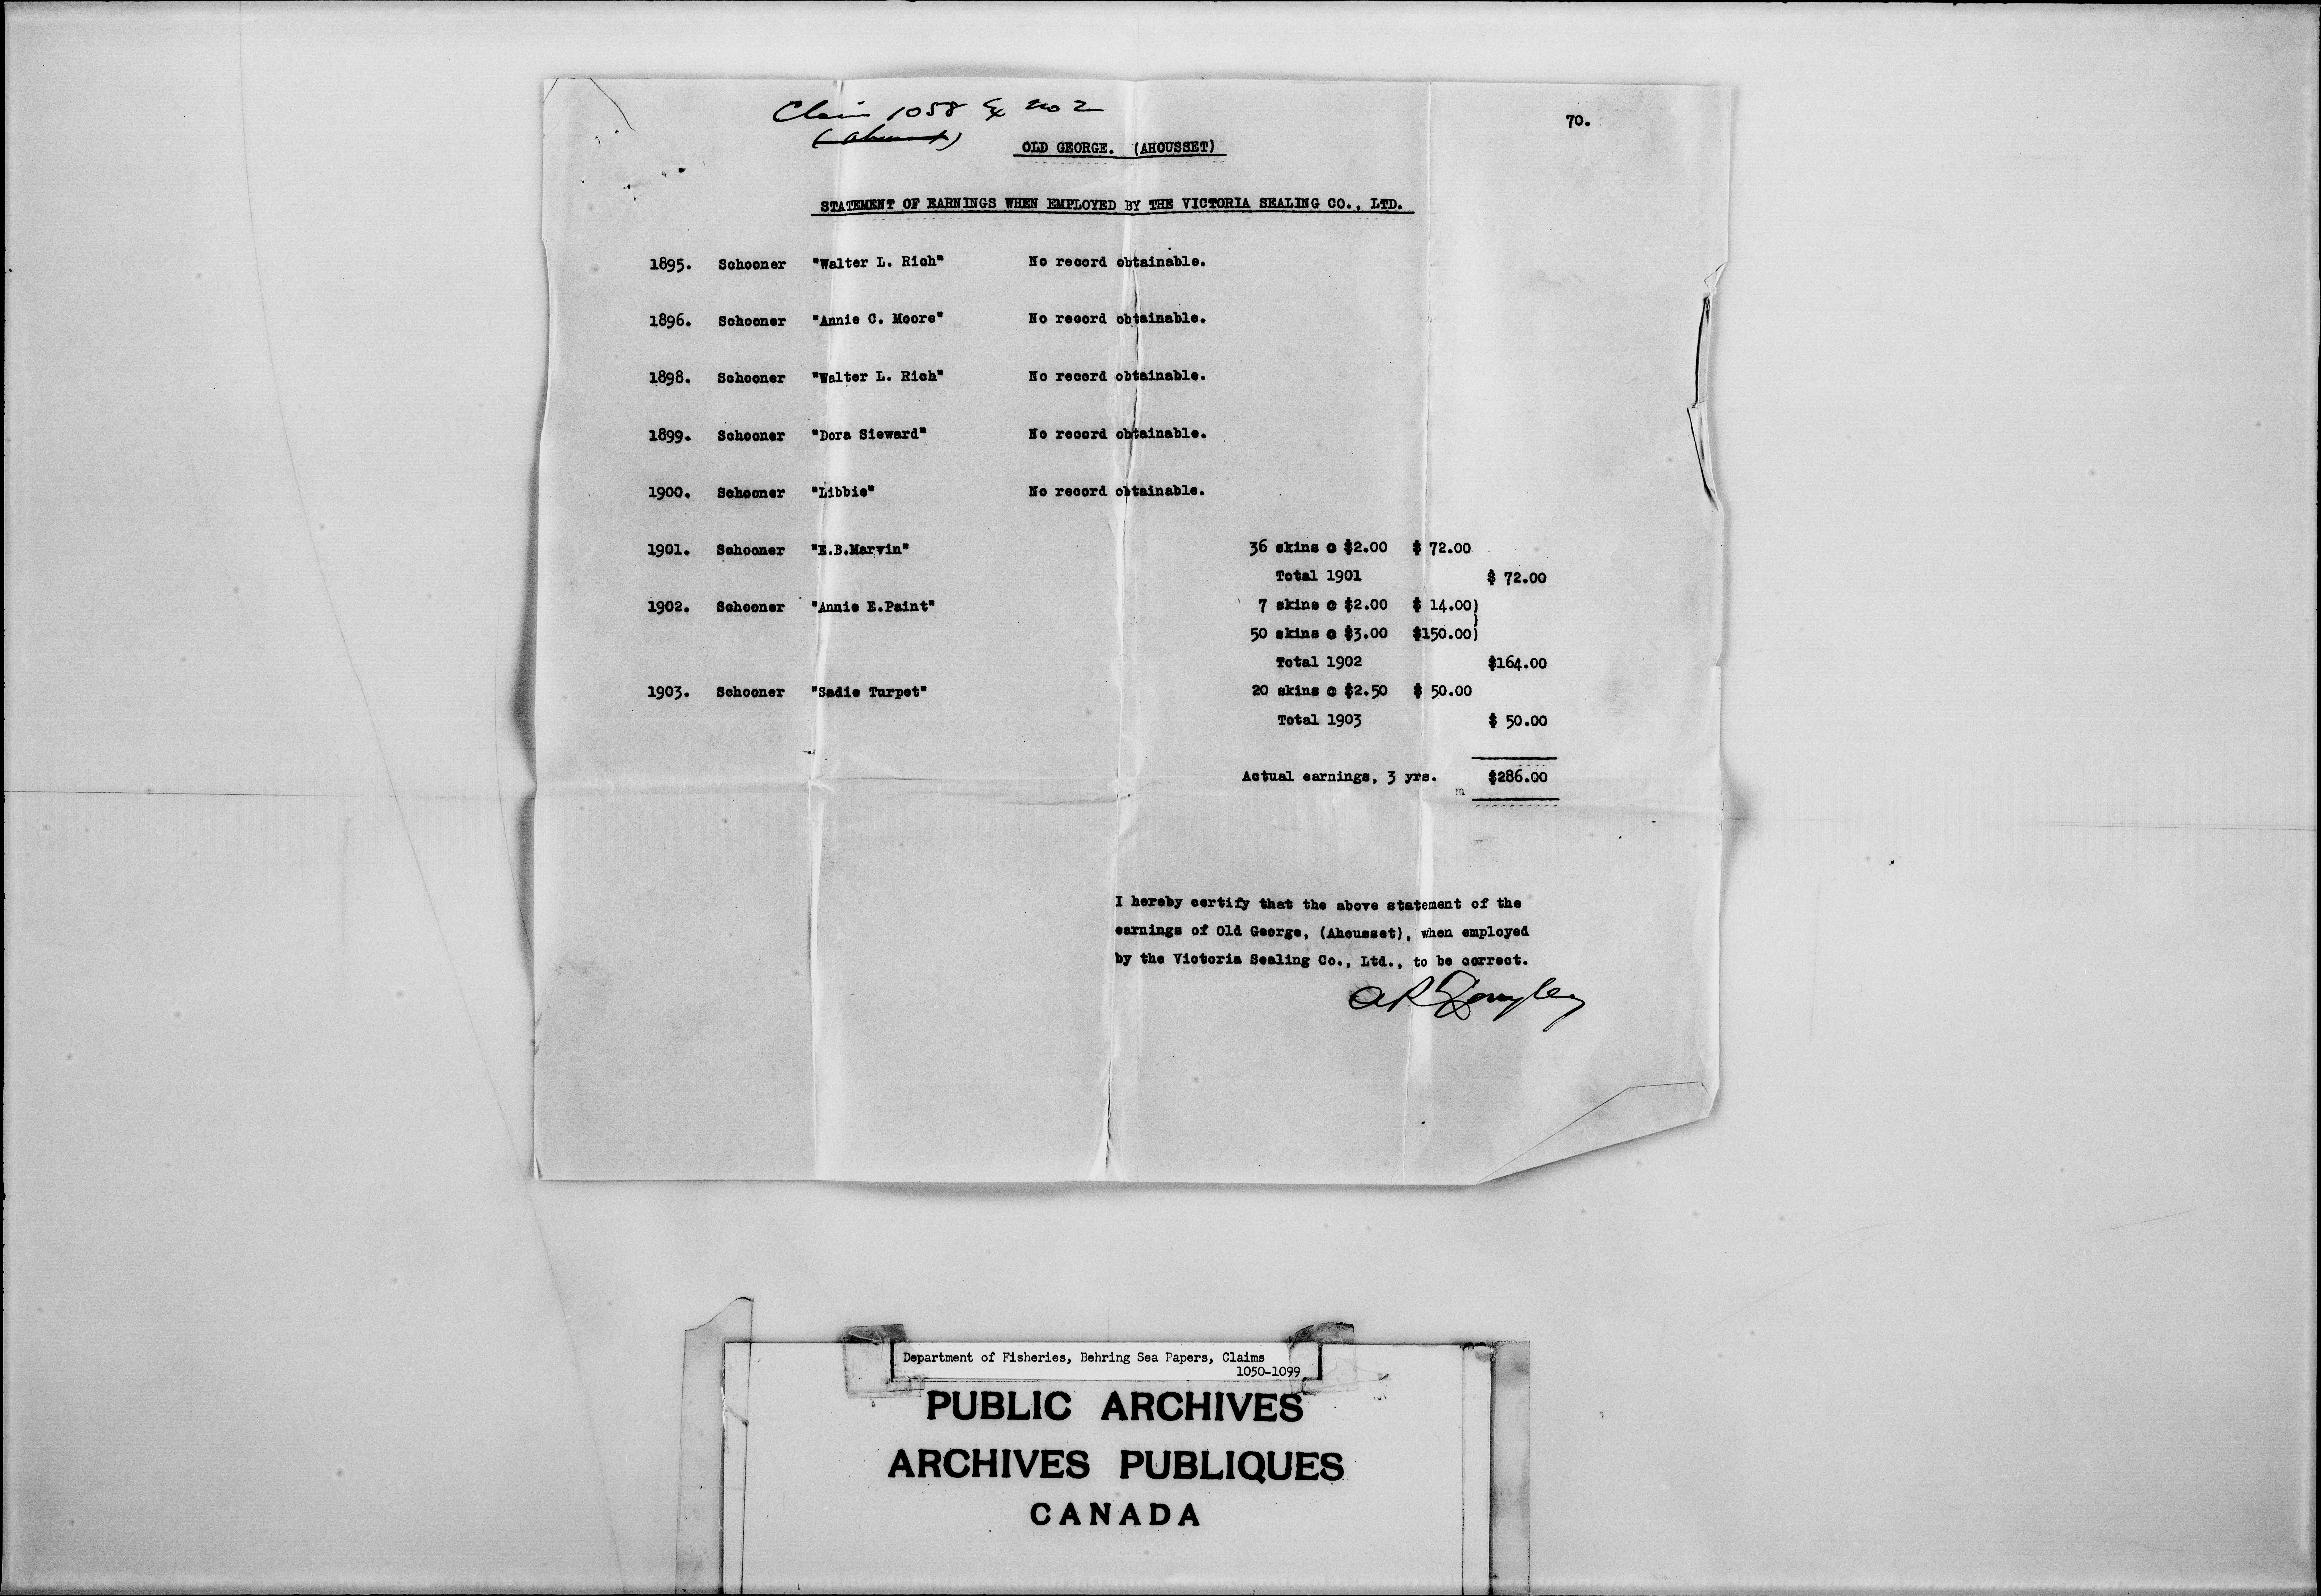 Claim 1058 Ex no 2
70.
OLD GEORGE. (AHOUSSET)
STATEMENT OF EARNINGS WHEN EMPLOYED BY THE VICTORIA SEALING CO., LTD.
1895. Schooner "Walter L. Rich" No record obtainable.
1896. Schooner "Annie C. Moore" No record obtainable.
1898. Schooner "Walter L. Rich" No record obtainable.
1899. Schooner "Dora Sieward" No record obtainable.
1900. Schooner "Libbie" No record obtainable.
1901. Schooner "E.B.Marvin" 36 skins @ $2.00 $ 72.00
Total 1901 $ 72.00
1902. Schooner "Annie E.Paint" 7 skins @ $2.00 $ 14.00)
)
50 skins @ $3.00 $150.00)
Total 1902 $164.00
1903. Schooner "Sadie Turpet" 20 skins @ $2.50 $ 50.00
Total 1903 $ 50.00
Actual earnings, 3 yrs. $286.00
m
I hereby certify that the above statement of the
earnings of Old George, (Ahousset), when employed
by the Victoria Sealing Co., Ltd., to be correct.
Department of Fisheries, Behring Sea Papers, Claims
1050-1099
PUBLIC ARCHIVES
ARCHIVES PUBLIQUES
CANADA